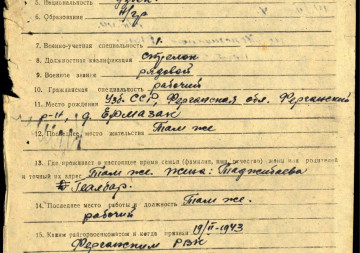 5. Национальность
6. Образование н/гр
7. Военно-учетная специальность 1.
8. Должностная квалификация стрелок
9. Военное звание рядовой
10. Гражданская специальность рабочий
11. Место рождения Узб. ССР, Ферганская обл. Ферганский
р-н, д. Ермазак
12. Последнее место жительства Там же
13. Где проживает в настоящее время семья (фамилия, имя, отчество) жены или родителей
и точный их адрес Там же. жена: Таджибаева
14. Последнее место работы и должность Там же.
рабочий
15. Каким райгорвоенкоматом и когда призван 19/II-1943
Ферганским РВК